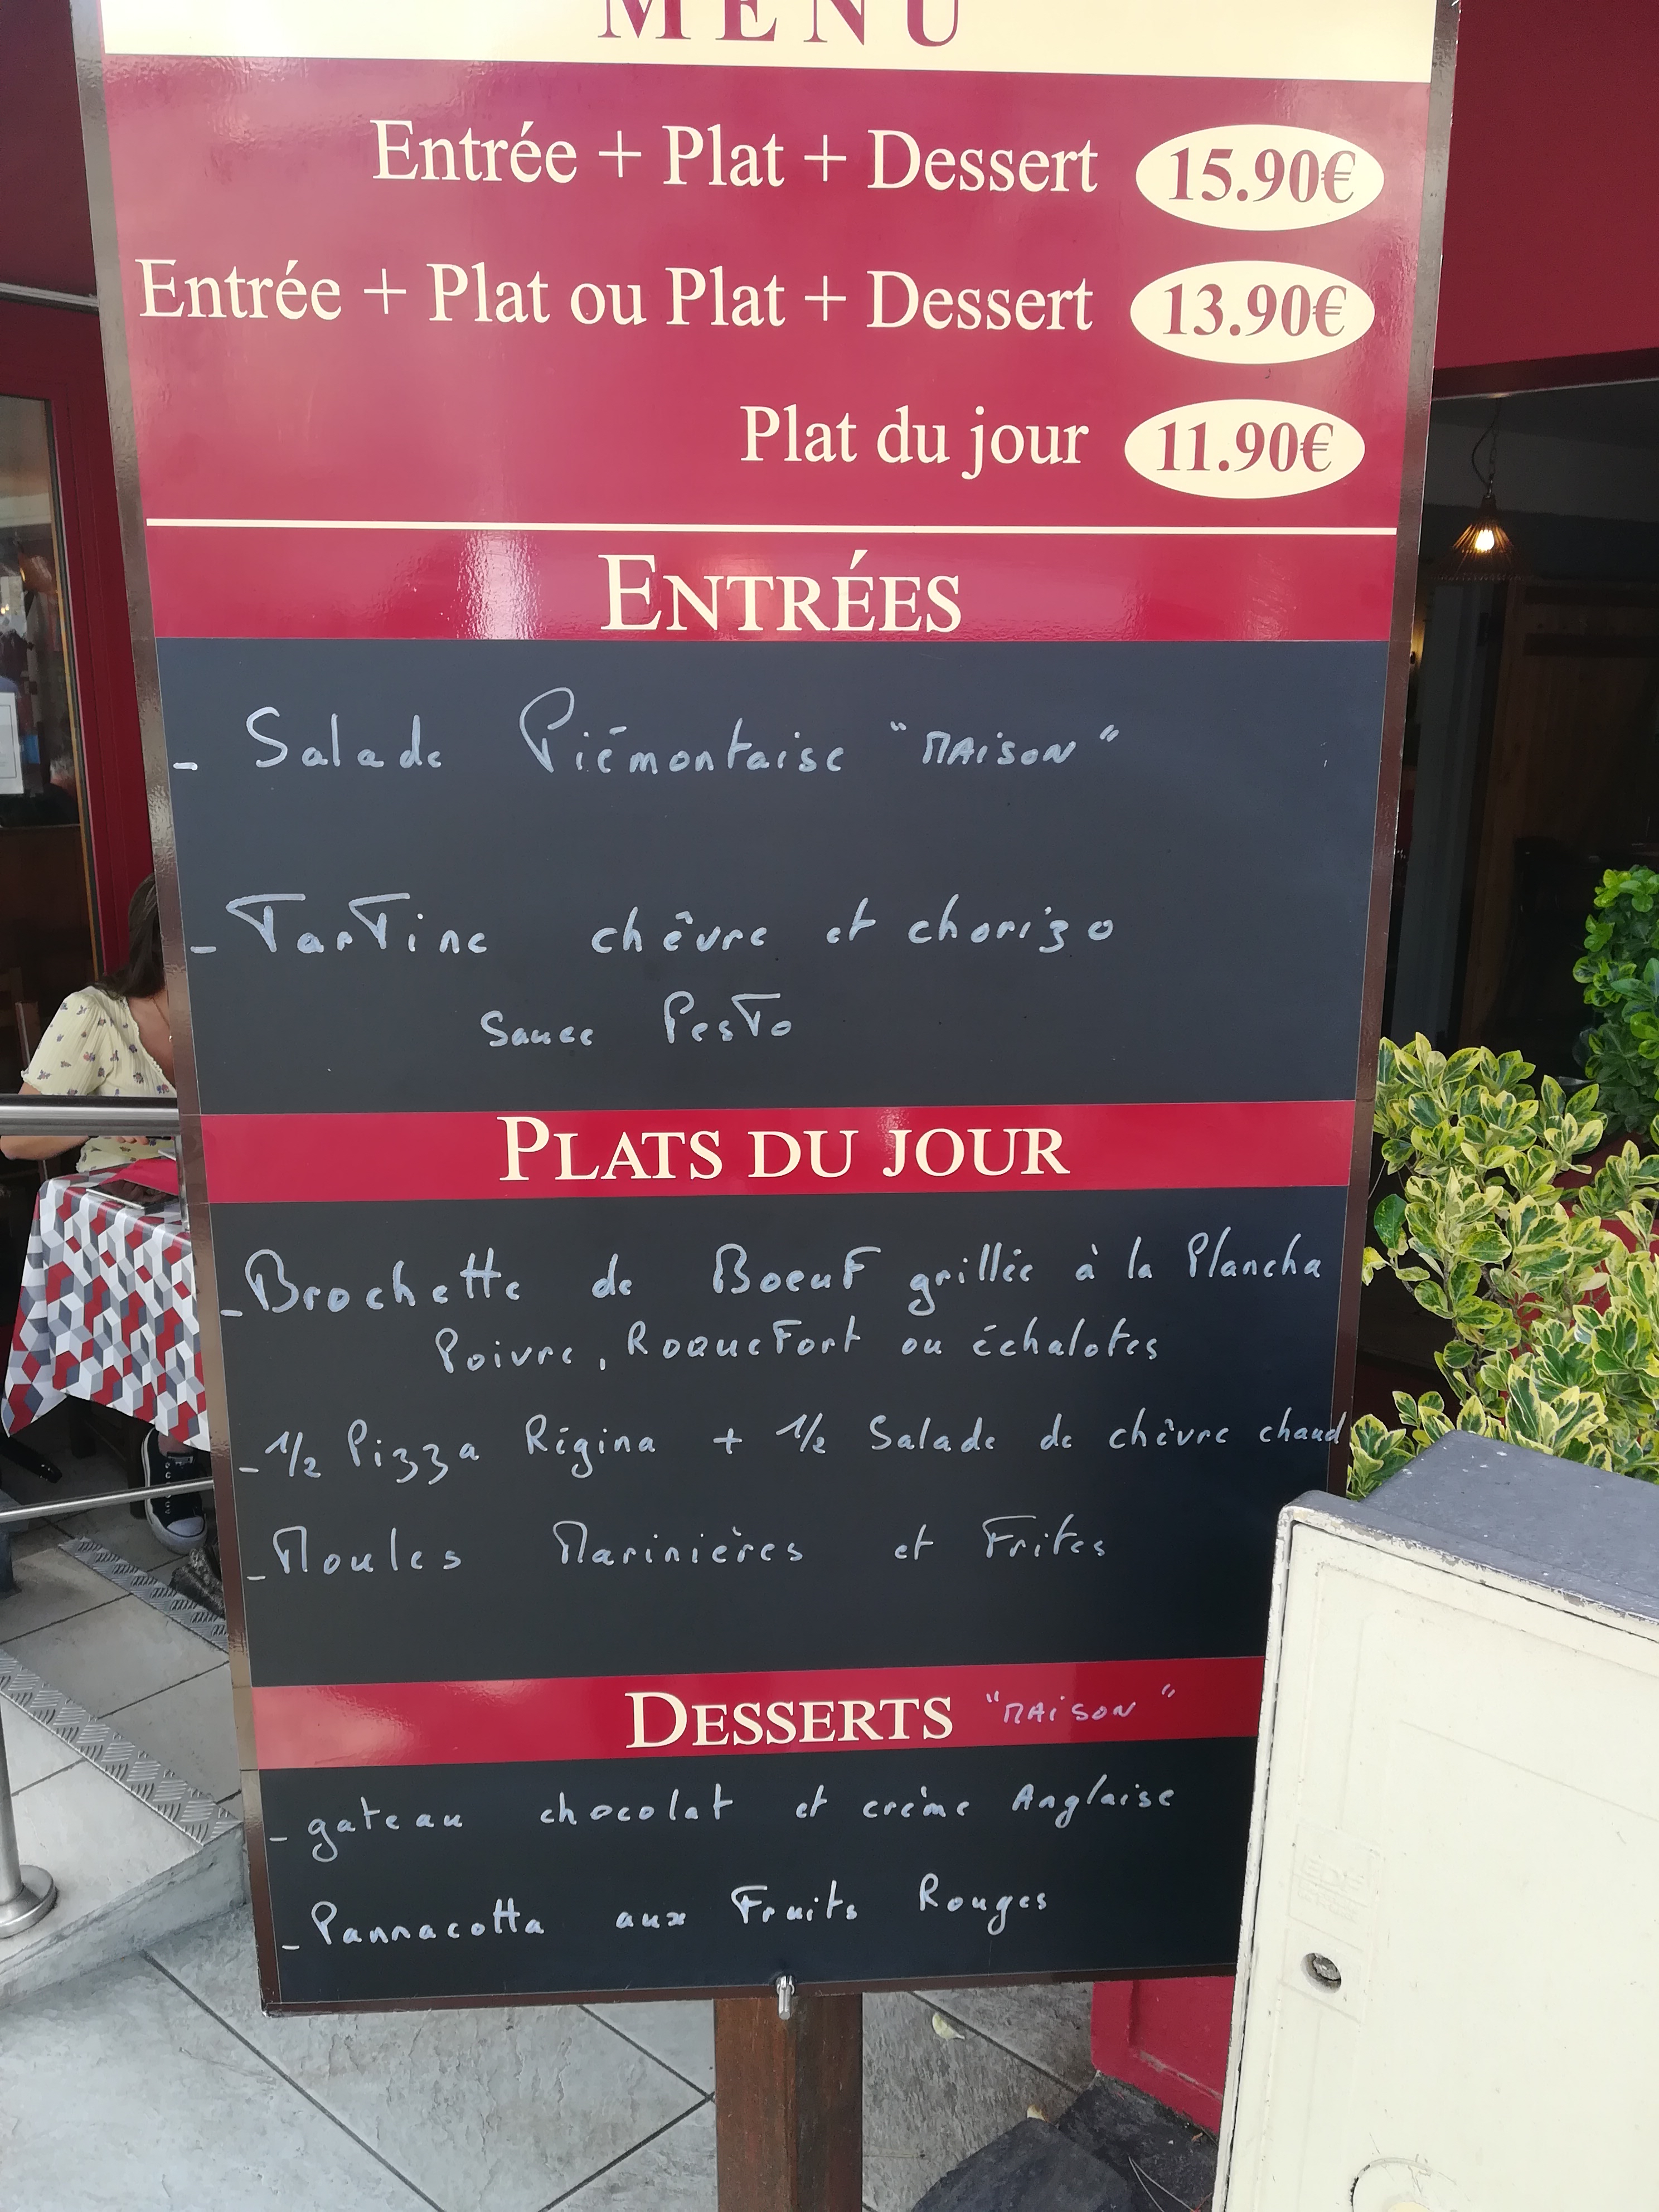 MENU
Entrée + Plat + Dessert 15.90€
Entrée + Plat ou Plat + Dessert 13.90€
Plat du jour 11.90€
ENTRÉES
- Salade Piémontaise "MAison"
- Tartine chêvre et chorizo
Sauce Pesto
PLATS DU JOUR
- Brochette de Boeuf grillée à la Plancha
Poivre, Roquefort ou échalotes
- 1/2 Pizza Régina + 1/2 Salade de chèvre chaud
- Moules Marinières et Frites
DESSERTS "MAison"
- gateau chocolat et crème Anglaise
- Pannacotta aux Fruits Rouges
EDF